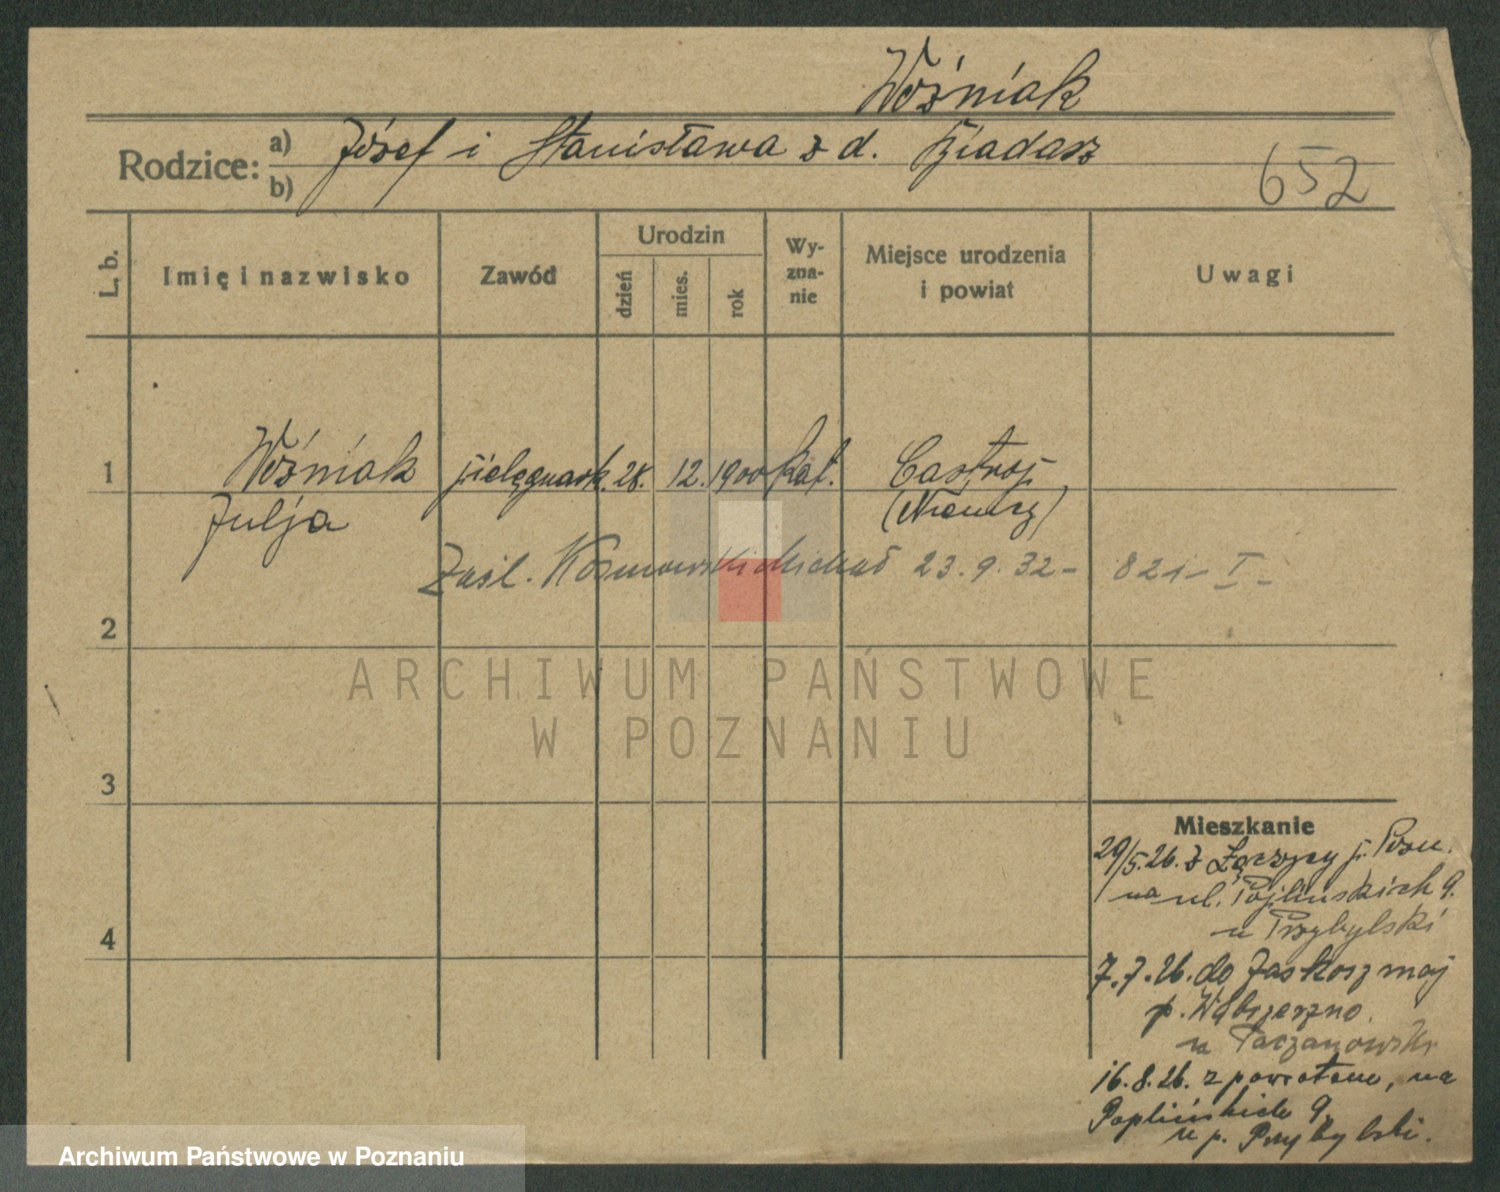 Woźniak
Rodzice: a) Józef i Stanisława z d.
b)
652
L. b.
Imię i nazwisko
Zawód
Urodzin
dzień
mies.
rok
Wy-
zna-
nie
Miejsce urodzenia
i powiat
Uwagi
1
Woźniak pielęgniark. 28. 12. 1900 kat. Castrop
Julja (Niemcy)
Zaśl. Michał 23.9.32 - 821 - I -
2
ARCHIWUM PAŃSTWOWE
W POZNANIU
3
4
Mieszkanie
29/5.26. z p. Pozn.
na ul. 9.
u Przybylski
7.7.26. do
p. Wąbrzeźno
u Taczanowski
16.8.26. z powrotem, na
Poplińskich 9.
u p. Przybylski.
Archiwum Państwowe w Poznaniu